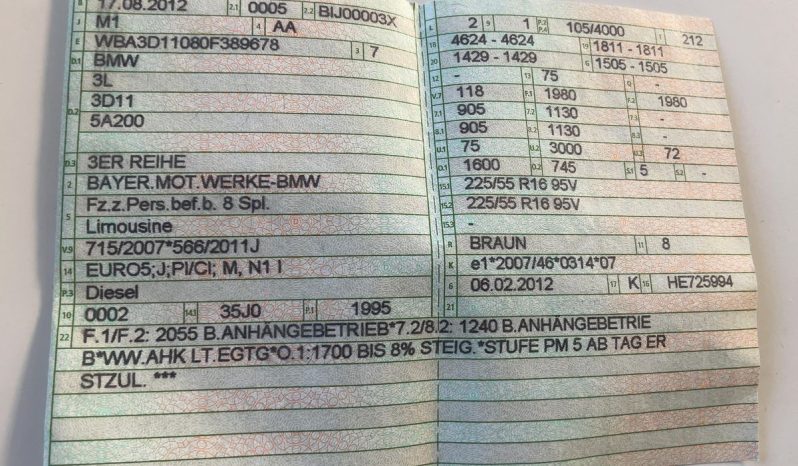 B 17.08.2012 2.1 0005 2.2 BIJ00003X
J M1 4 AA
E WBA3D11080F389678 3 7
D.1 BMW
3L
D.2 3D11
5A200
D.3 3ER REIHE
2 BAYER.MOT.WERKE-BMW
5 Fz.z.Pers.bef.b. 8 Spl.
Limousine
V.9 715/2007*566/2011J
14 EURO5;J;PI/CI; M, N1 I
P.3 Diesel
10 0002 14.1 35J0 P.1 1995
L 2 9 1 P.2 P.4 105/4000 T 212
18 4624 - 4624 19 1811 - 1811
20 1429 - 1429 G 1505 - 1505
12 - 13 75 Q -
V.7 118 F.1 1980 F.2 1980
7.1 905 7.2 1130 7.3 -
8.1 905 8.2 1130 8.3 -
U.1 75 U.2 3000 U.3 72
O.1 1600 O.2 745 S.1 5 S.2 -
15.1 225/55 R16 95V
15.2 225/55 R16 95V
15.3 -
R BRAUN 11 8
K e1*2007/46*0314*07
6 06.02.2012 17 K 16 HE725994
21
22 F.1/F.2: 2055 B.ANHÄNGEBETRIEB*7.2/8.2: 1240 B.ANHÄNGEBETRIE
B*WW.AHK LT.EGTG*O.1:1700 BIS 8% STEIG.*STUFE PM 5 AB TAG ER
STZUL. ***